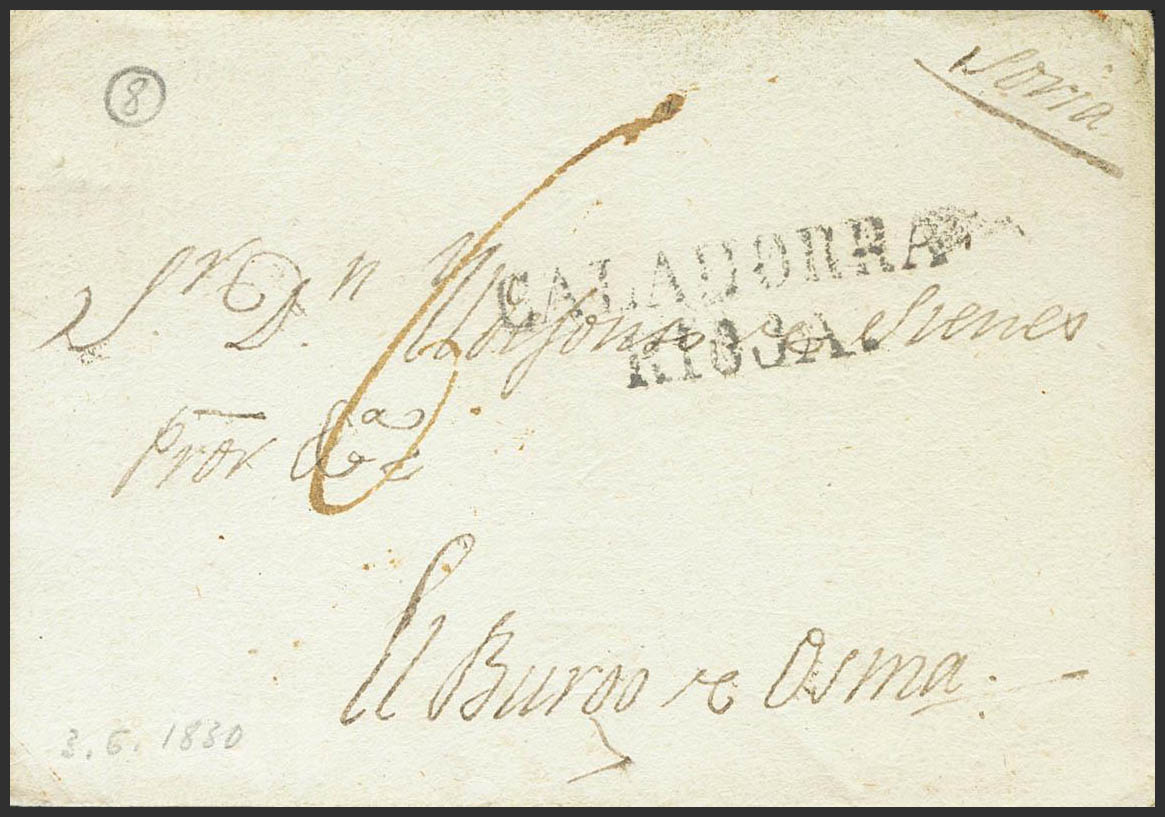 8
Soria
CALAHORRA
RIOJA.
6
Sr. Dn. Yldefonso de
Pror &a
El Burgo de Osma.
3.6.1830